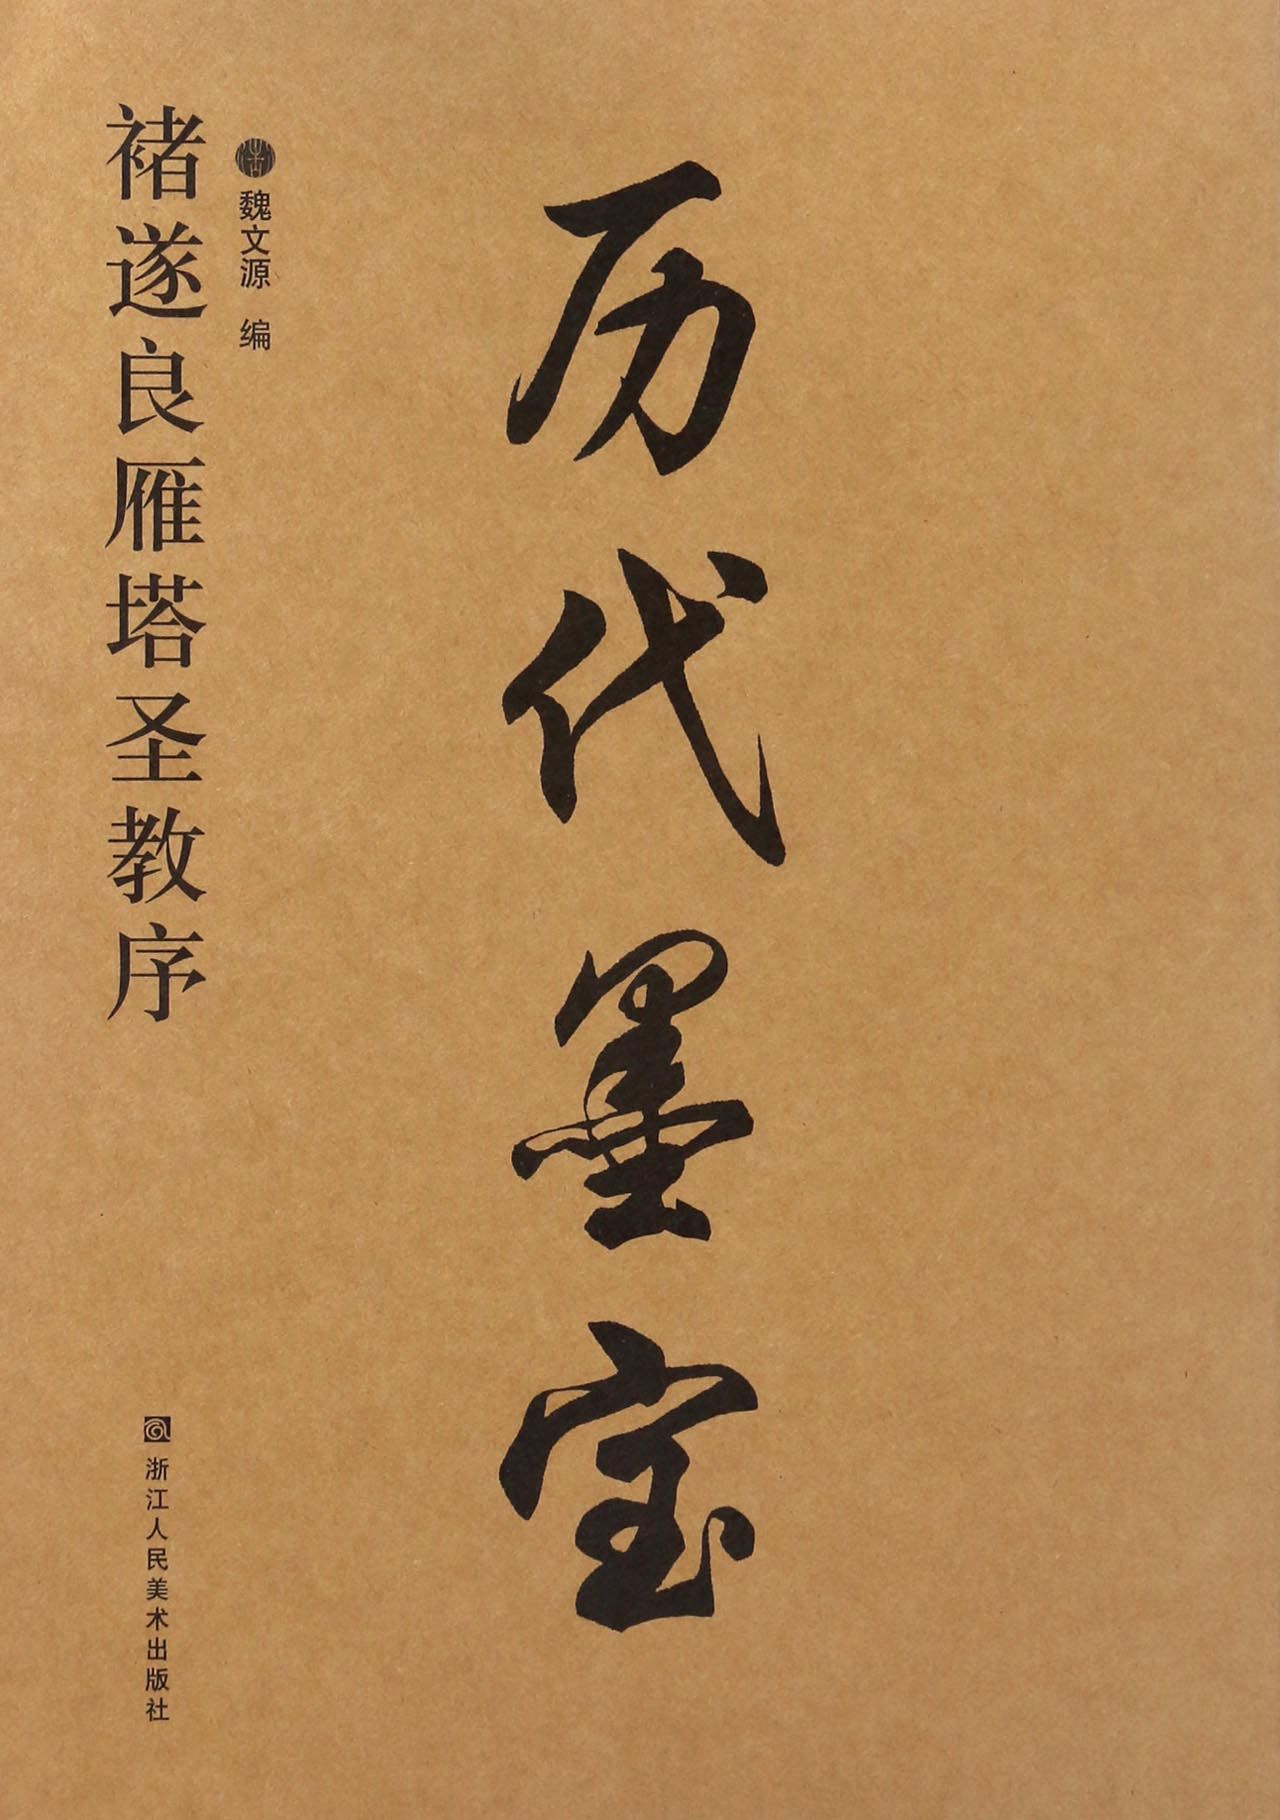 历代墨宝
魏文源 编
褚遂良雁塔圣教序
浙江人民美术出版社